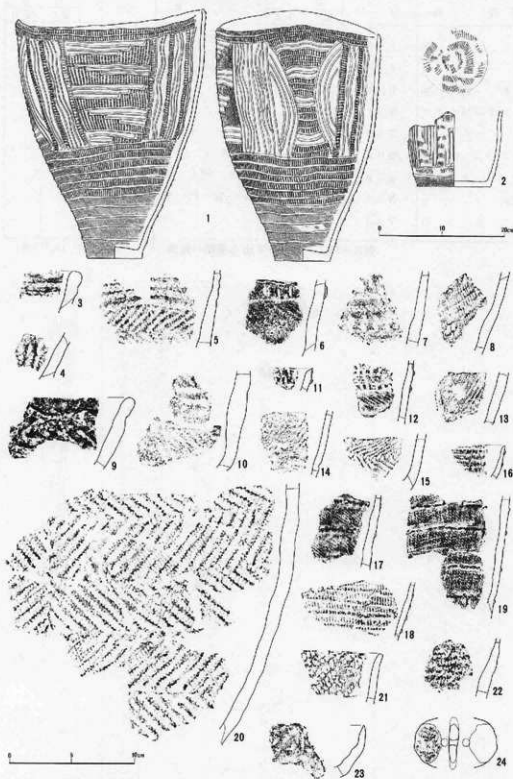 1
2
0 10 20cm
3
4
5
6
7
8
9
10
11
12
13
14
15
16
17
18
19
20
21
22
23
24
0 5 10cm